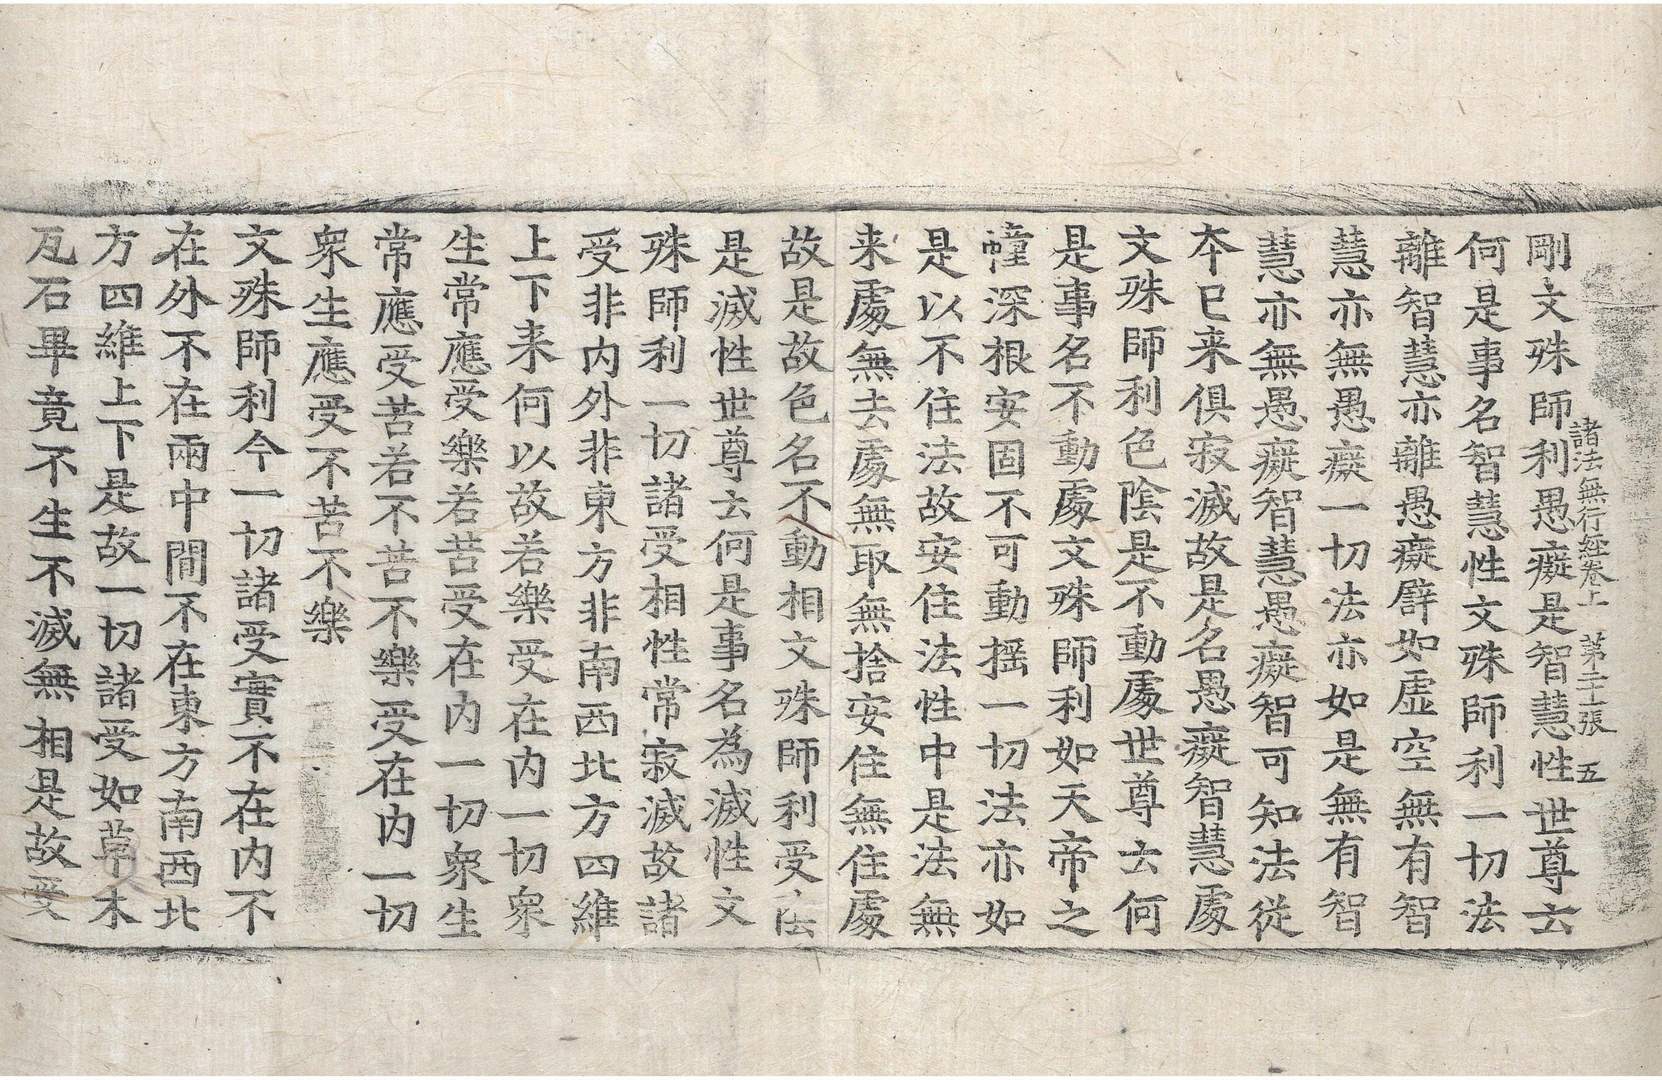 諸法無行経卷上 第二十張 五
剛文殊師利愚癡是智慧性世尊云
何是事名智慧性文殊師利一切法
離智慧亦離愚癡譬如虛空無有智
慧亦無愚癡一切法亦如是無有智
慧亦無愚癡智慧愚癡智可知法從
本已来俱寂滅故是名愚癡智慧處
文殊師利色陰是不動處世尊云何
是事名不動處文殊師利如天帝之
幢深根安固不可動摇一切法亦如
是以不住法故安住法性中是法無
来處無去處無取無捨安住無住處
故是故色名不動相文殊師利受陰
是滅性世尊云何是事名為滅性文
殊師利一切諸受相性常寂滅故諸
受非内外非東方非南西北方四維
上下来何以故若樂受在内一切衆
生常應受樂若苦受在内一切衆生
常應受苦若不苦不樂受在内一切
衆生應受不苦不樂
文殊師利今一切諸受實不在内不
在外不在兩中間不在東方南西北
方四維上下是故一切諸受如草木
瓦石畢竟不生不滅無相是故受